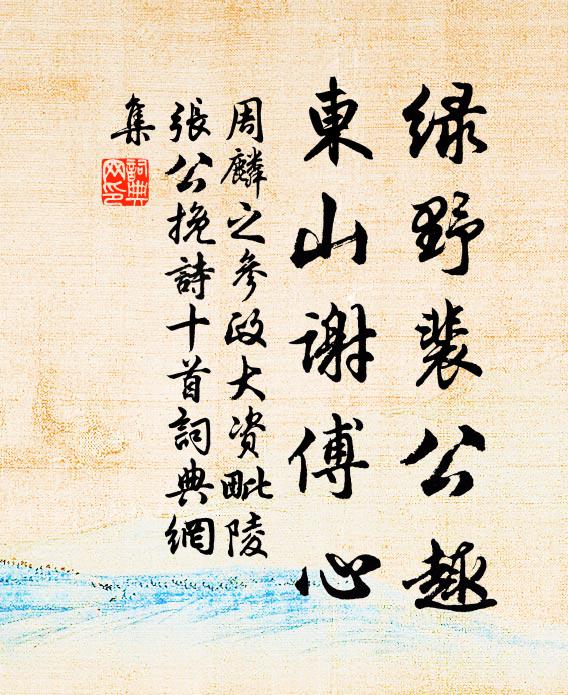 绿野裴公趣
東山謝傅心
周麟之參政大資毗陵
張公挽詩十首詞典網
集
詞典
网印